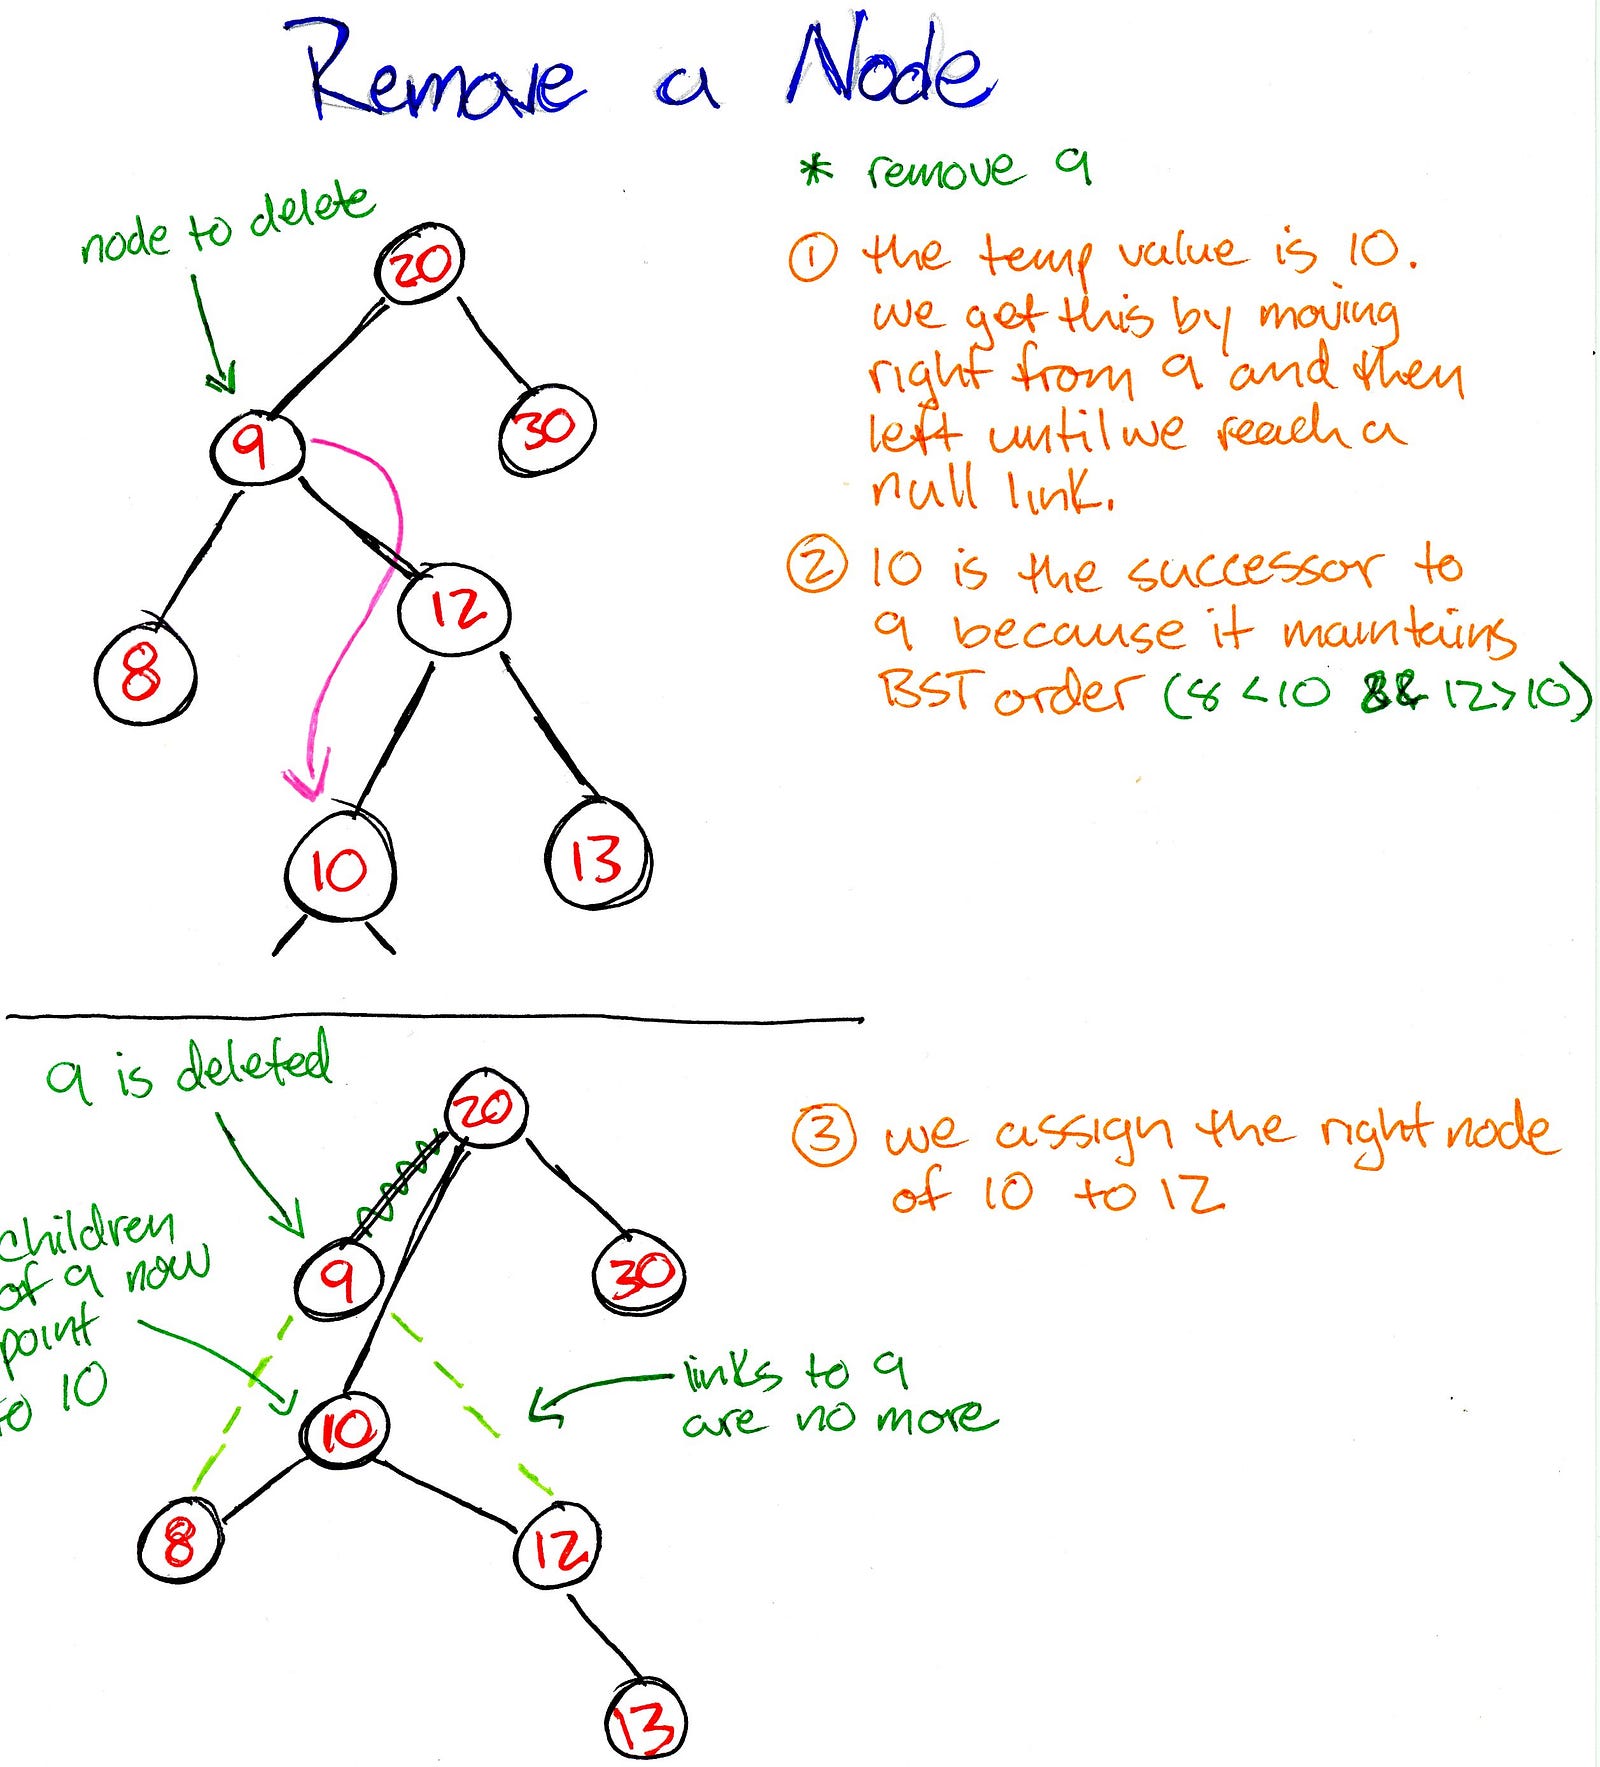 Remove a Node
* remove 9
node to delete
① the temp value is 10.
we get this by moving
right from 9 and then
left until we reach a
null link.
② 10 is the successor to
9 because it maintains
BST order (8 < 10 && 12 > 10)
20
9
30
8
12
10
13
9 is deleted
③ we assign the right node
of 10 to 12
children
of 9 now
point
to 10
links to 9
are no more
20
9
30
10
8
12
13